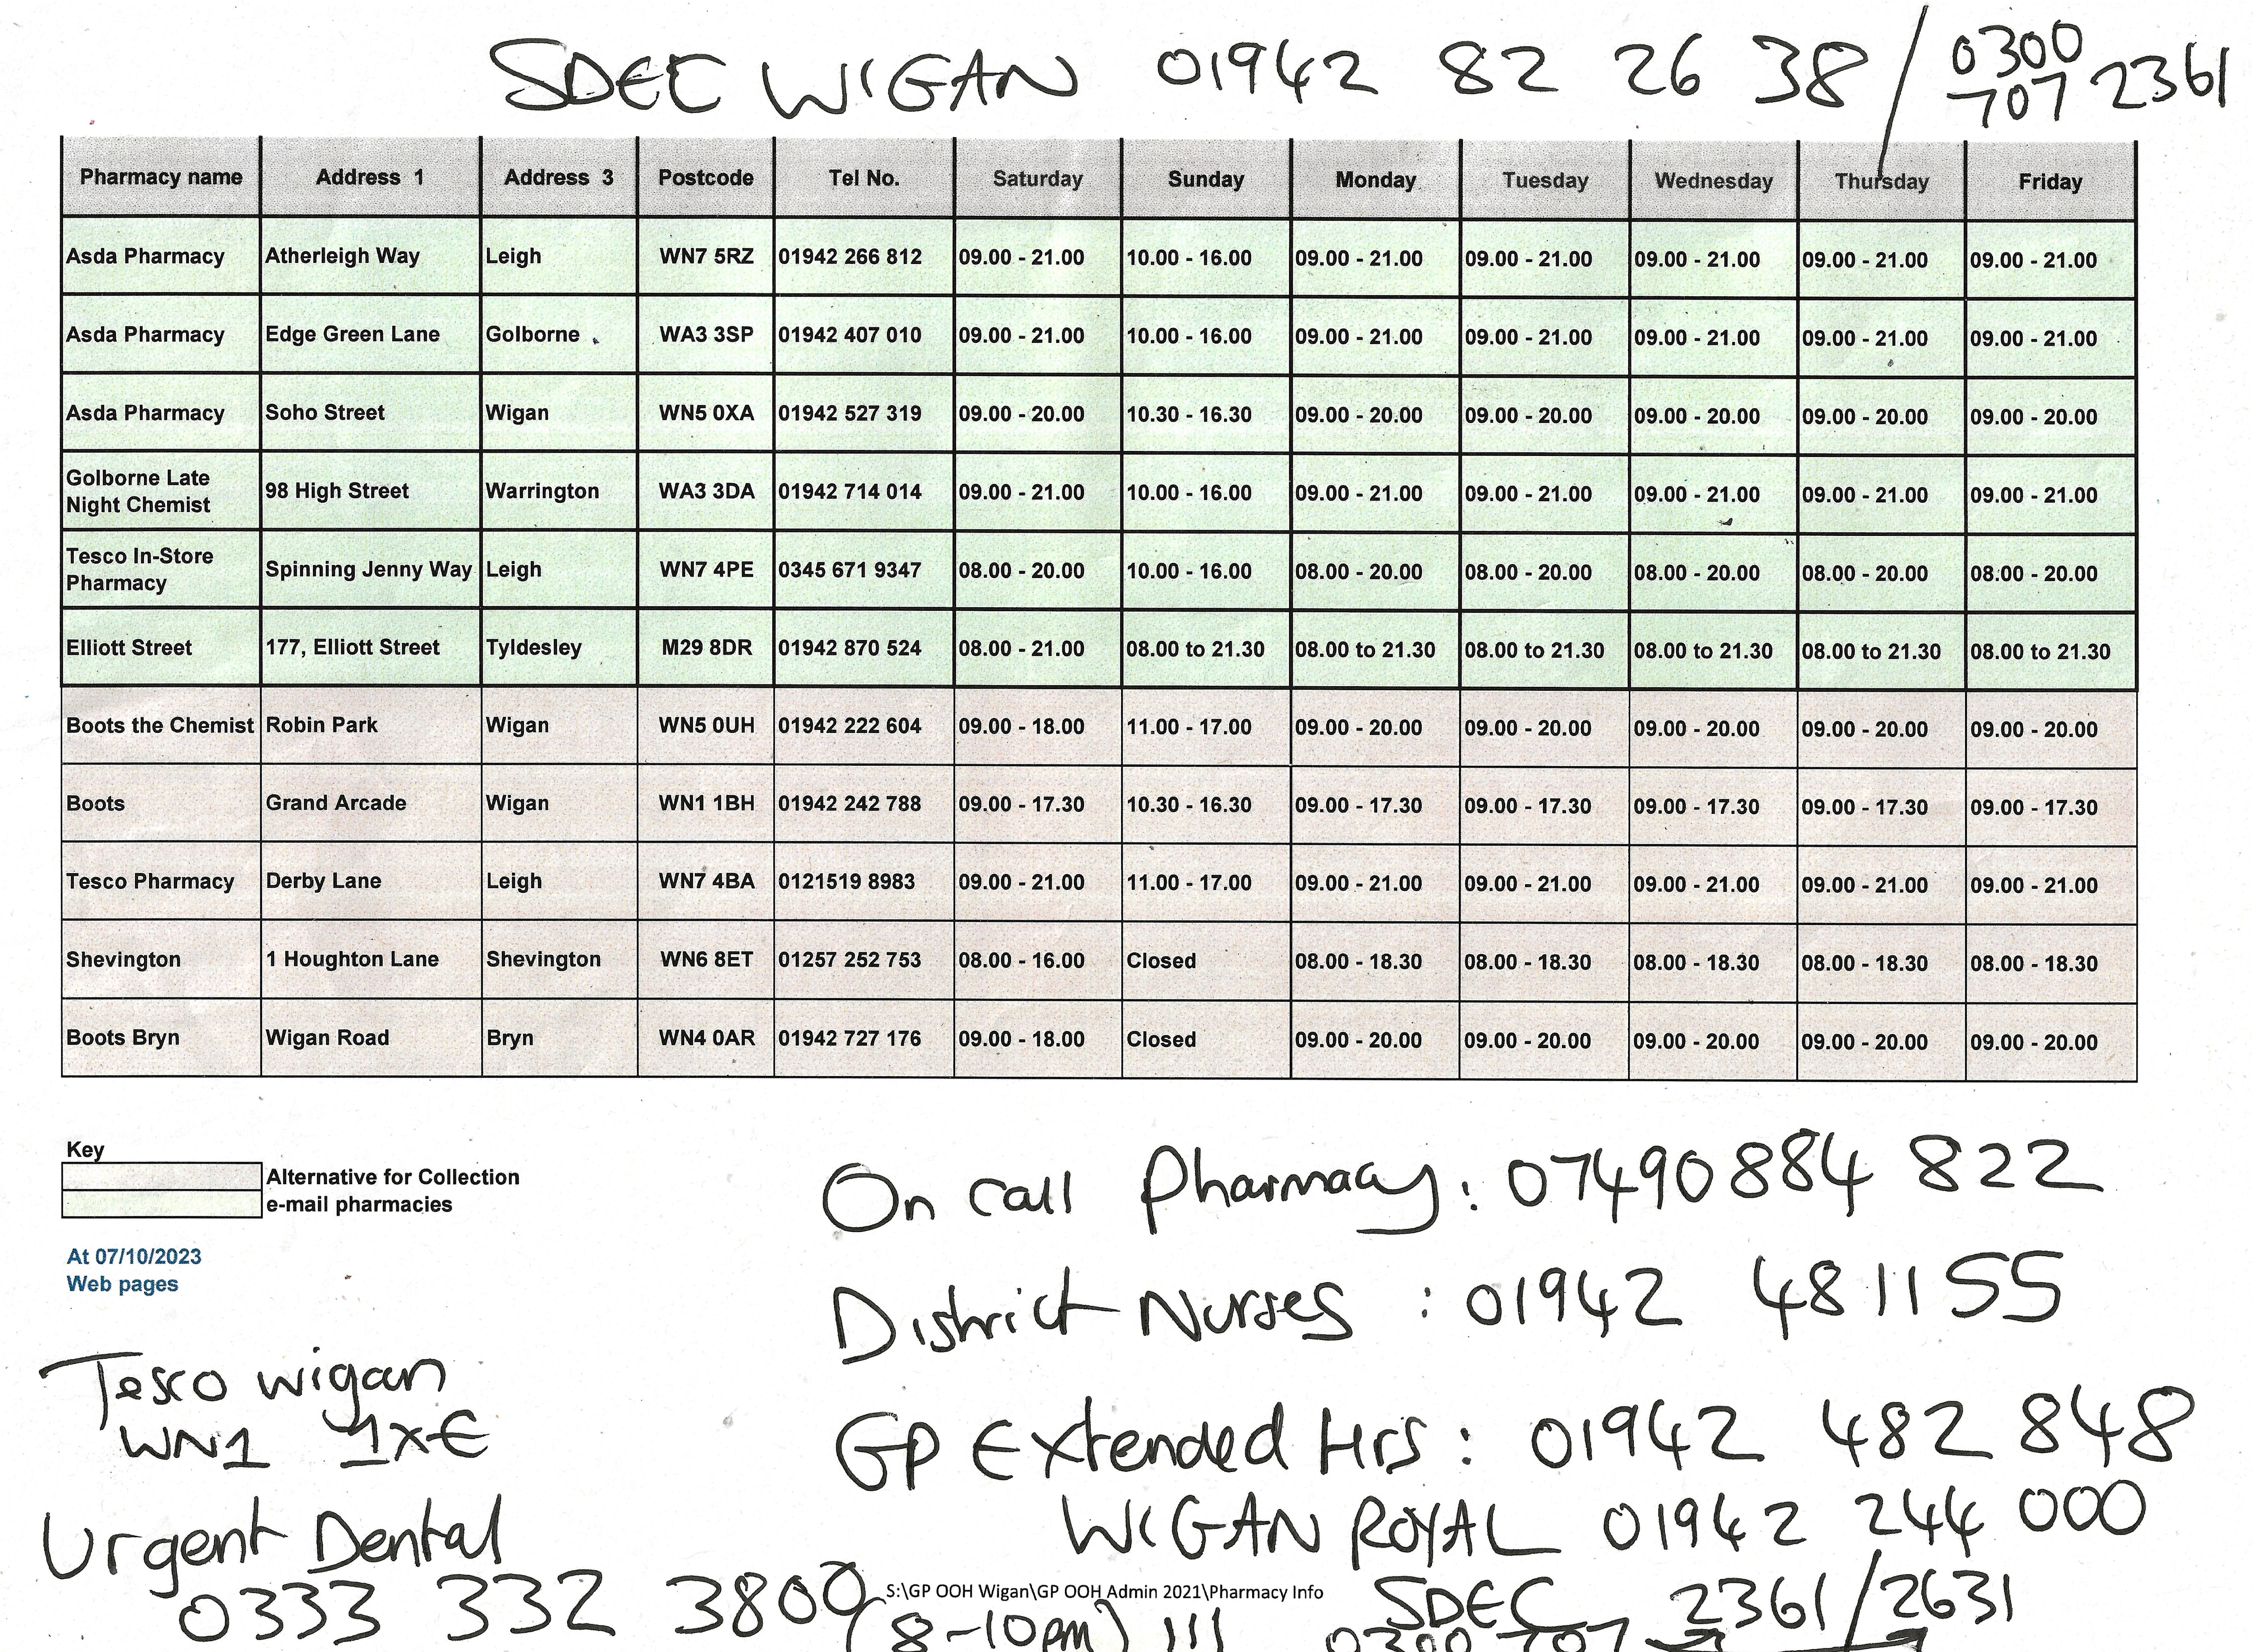 SDEC WIGAN 01942 82 26 38 / 0300 707 2361
Pharmacy name Address 1 Address 3 Postcode Tel No. Saturday Sunday Monday Tuesday Wednesday Thursday Friday
Asda Pharmacy Atherleigh Way Leigh WN7 5RZ 01942 266 812 09.00 - 21.00 10.00 - 16.00 09.00 - 21.00 09.00 - 21.00 09.00 - 21.00 09.00 - 21.00 09.00 - 21.00
Asda Pharmacy Edge Green Lane Golborne WA3 3SP 01942 407 010 09.00 - 21.00 10.00 - 16.00 09.00 - 21.00 09.00 - 21.00 09.00 - 21.00 09.00 - 21.00 09.00 - 21.00
Asda Pharmacy Soho Street Wigan WN5 0XA 01942 527 319 09.00 - 20.00 10.30 - 16.30 09.00 - 20.00 09.00 - 20.00 09.00 - 20.00 09.00 - 20.00 09.00 - 20.00
Golborne Late Night Chemist 98 High Street Warrington WA3 3DA 01942 714 014 09.00 - 21.00 10.00 - 16.00 09.00 - 21.00 09.00 - 21.00 09.00 - 21.00 09.00 - 21.00 09.00 - 21.00
Tesco In-Store Pharmacy Spinning Jenny Way Leigh WN7 4PE 0345 671 9347 08.00 - 20.00 10.00 - 16.00 08.00 - 20.00 08.00 - 20.00 08.00 - 20.00 08.00 - 20.00 08.00 - 20.00
Elliott Street 177, Elliott Street Tyldesley M29 8DR 01942 870 524 08.00 - 21.00 08.00 to 21.30 08.00 to 21.30 08.00 to 21.30 08.00 to 21.30 08.00 to 21.30 08.00 to 21.30
Boots the Chemist Robin Park Wigan WN5 0UH 01942 222 604 09.00 - 18.00 11.00 - 17.00 09.00 - 20.00 09.00 - 20.00 09.00 - 20.00 09.00 - 20.00 09.00 - 20.00
Boots Grand Arcade Wigan WN1 1BH 01942 242 788 09.00 - 17.30 10.30 - 16.30 09.00 - 17.30 09.00 - 17.30 09.00 - 17.30 09.00 - 17.30 09.00 - 17.30
Tesco Pharmacy Derby Lane Leigh WN7 4BA 0121519 8983 09.00 - 21.00 11.00 - 17.00 09.00 - 21.00 09.00 - 21.00 09.00 - 21.00 09.00 - 21.00 09.00 - 21.00
Shevington 1 Houghton Lane Shevington WN6 8ET 01257 252 753 08.00 - 16.00 Closed 08.00 - 18.30 08.00 - 18.30 08.00 - 18.30 08.00 - 18.30 08.00 - 18.30
Boots Bryn Wigan Road Bryn WN4 0AR 01942 727 176 09.00 - 18.00 Closed 09.00 - 20.00 09.00 - 20.00 09.00 - 20.00 09.00 - 20.00 09.00 - 20.00
Key
Alternative for Collection
e-mail pharmacies
At 07/10/2023
Web pages
On call Pharmacy: 07490884 822
District Nurses : 01942 481155
Tesco wigan
WN1 1XE
GP Extended Hrs : 01942 482 848
WIGAN ROYAL 01942 244 000
Urgent Dental
0333 332 3800
(8-10pm) !!!
S:\GP OOH Wigan\GP OOH Admin 2021\Pharmacy Info
SDEC 2361/2631
0300 707